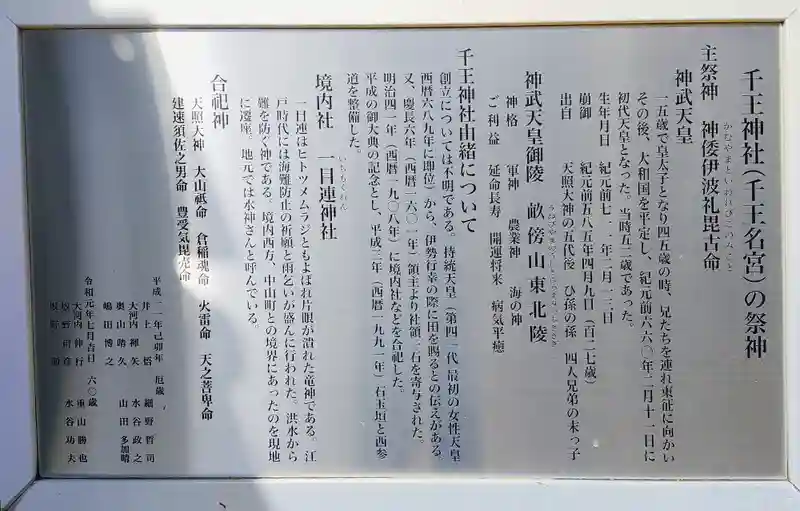 千王神社(千王名宮)の祭神
かむやまといわれびこのみこと
主祭神　神倭伊波礼毘古命
神武天皇
一五歳で皇太子となり四五歳の時、兄たちを連れ東征に向かい
その後、大和国を平定し、紀元前六六〇年二月十一日に
初代天皇となった。当時五二歳であった。
生年月日　紀元前七一一年二月一三日
崩御　紀元前五八五年四月九日（百二七歳）
出自　天照大神の五代後　ひ孫の孫　四人兄弟の末っ子
神武天皇御陵　畝傍山東北陵
神格　軍神　農業神　海の神
ご利益　延命長寿　開運将来　病気平癒
千王神社由緒について
創立については不明である。持統天皇（第四一代 最初の女性天皇
西暦六八九年に即位）から、伊勢行幸の際に田を賜るとの伝えがある。
又、慶長六年（西暦一六〇一年）領主より社領一石を寄与された。
明治四一年（西暦一九〇八年）に境内社などを合祀した。
平成の御大典の記念とし、平成三年（西暦一九九一年）石玉垣と西参
道を整備した。
いちもくれん
境内社　一目連神社
一目連はヒトツメムラジともよばれ片眼が潰れた竜神である。江
戸時代には海難防止の祈願と雨乞いが盛んに行われた。洪水から
難を防ぐ神である。境内西方、中山町との境界にあったのを現地
に遷座。地元では水神さんと呼んでいる。
合祀神
天照大神　大山祗命　倉稲魂命　火雷命　天之菩卑命
建速須佐之男命　豊受気毘売命
平成一一年己卯年　厄歳
井上　悟　細野哲司
大河内輝矢　水谷政之
奥山皓久　山田多加晴
嶋田博之
令和元年七月吉日　六〇歳
大河内伸行　重山勝也
水谷功夫